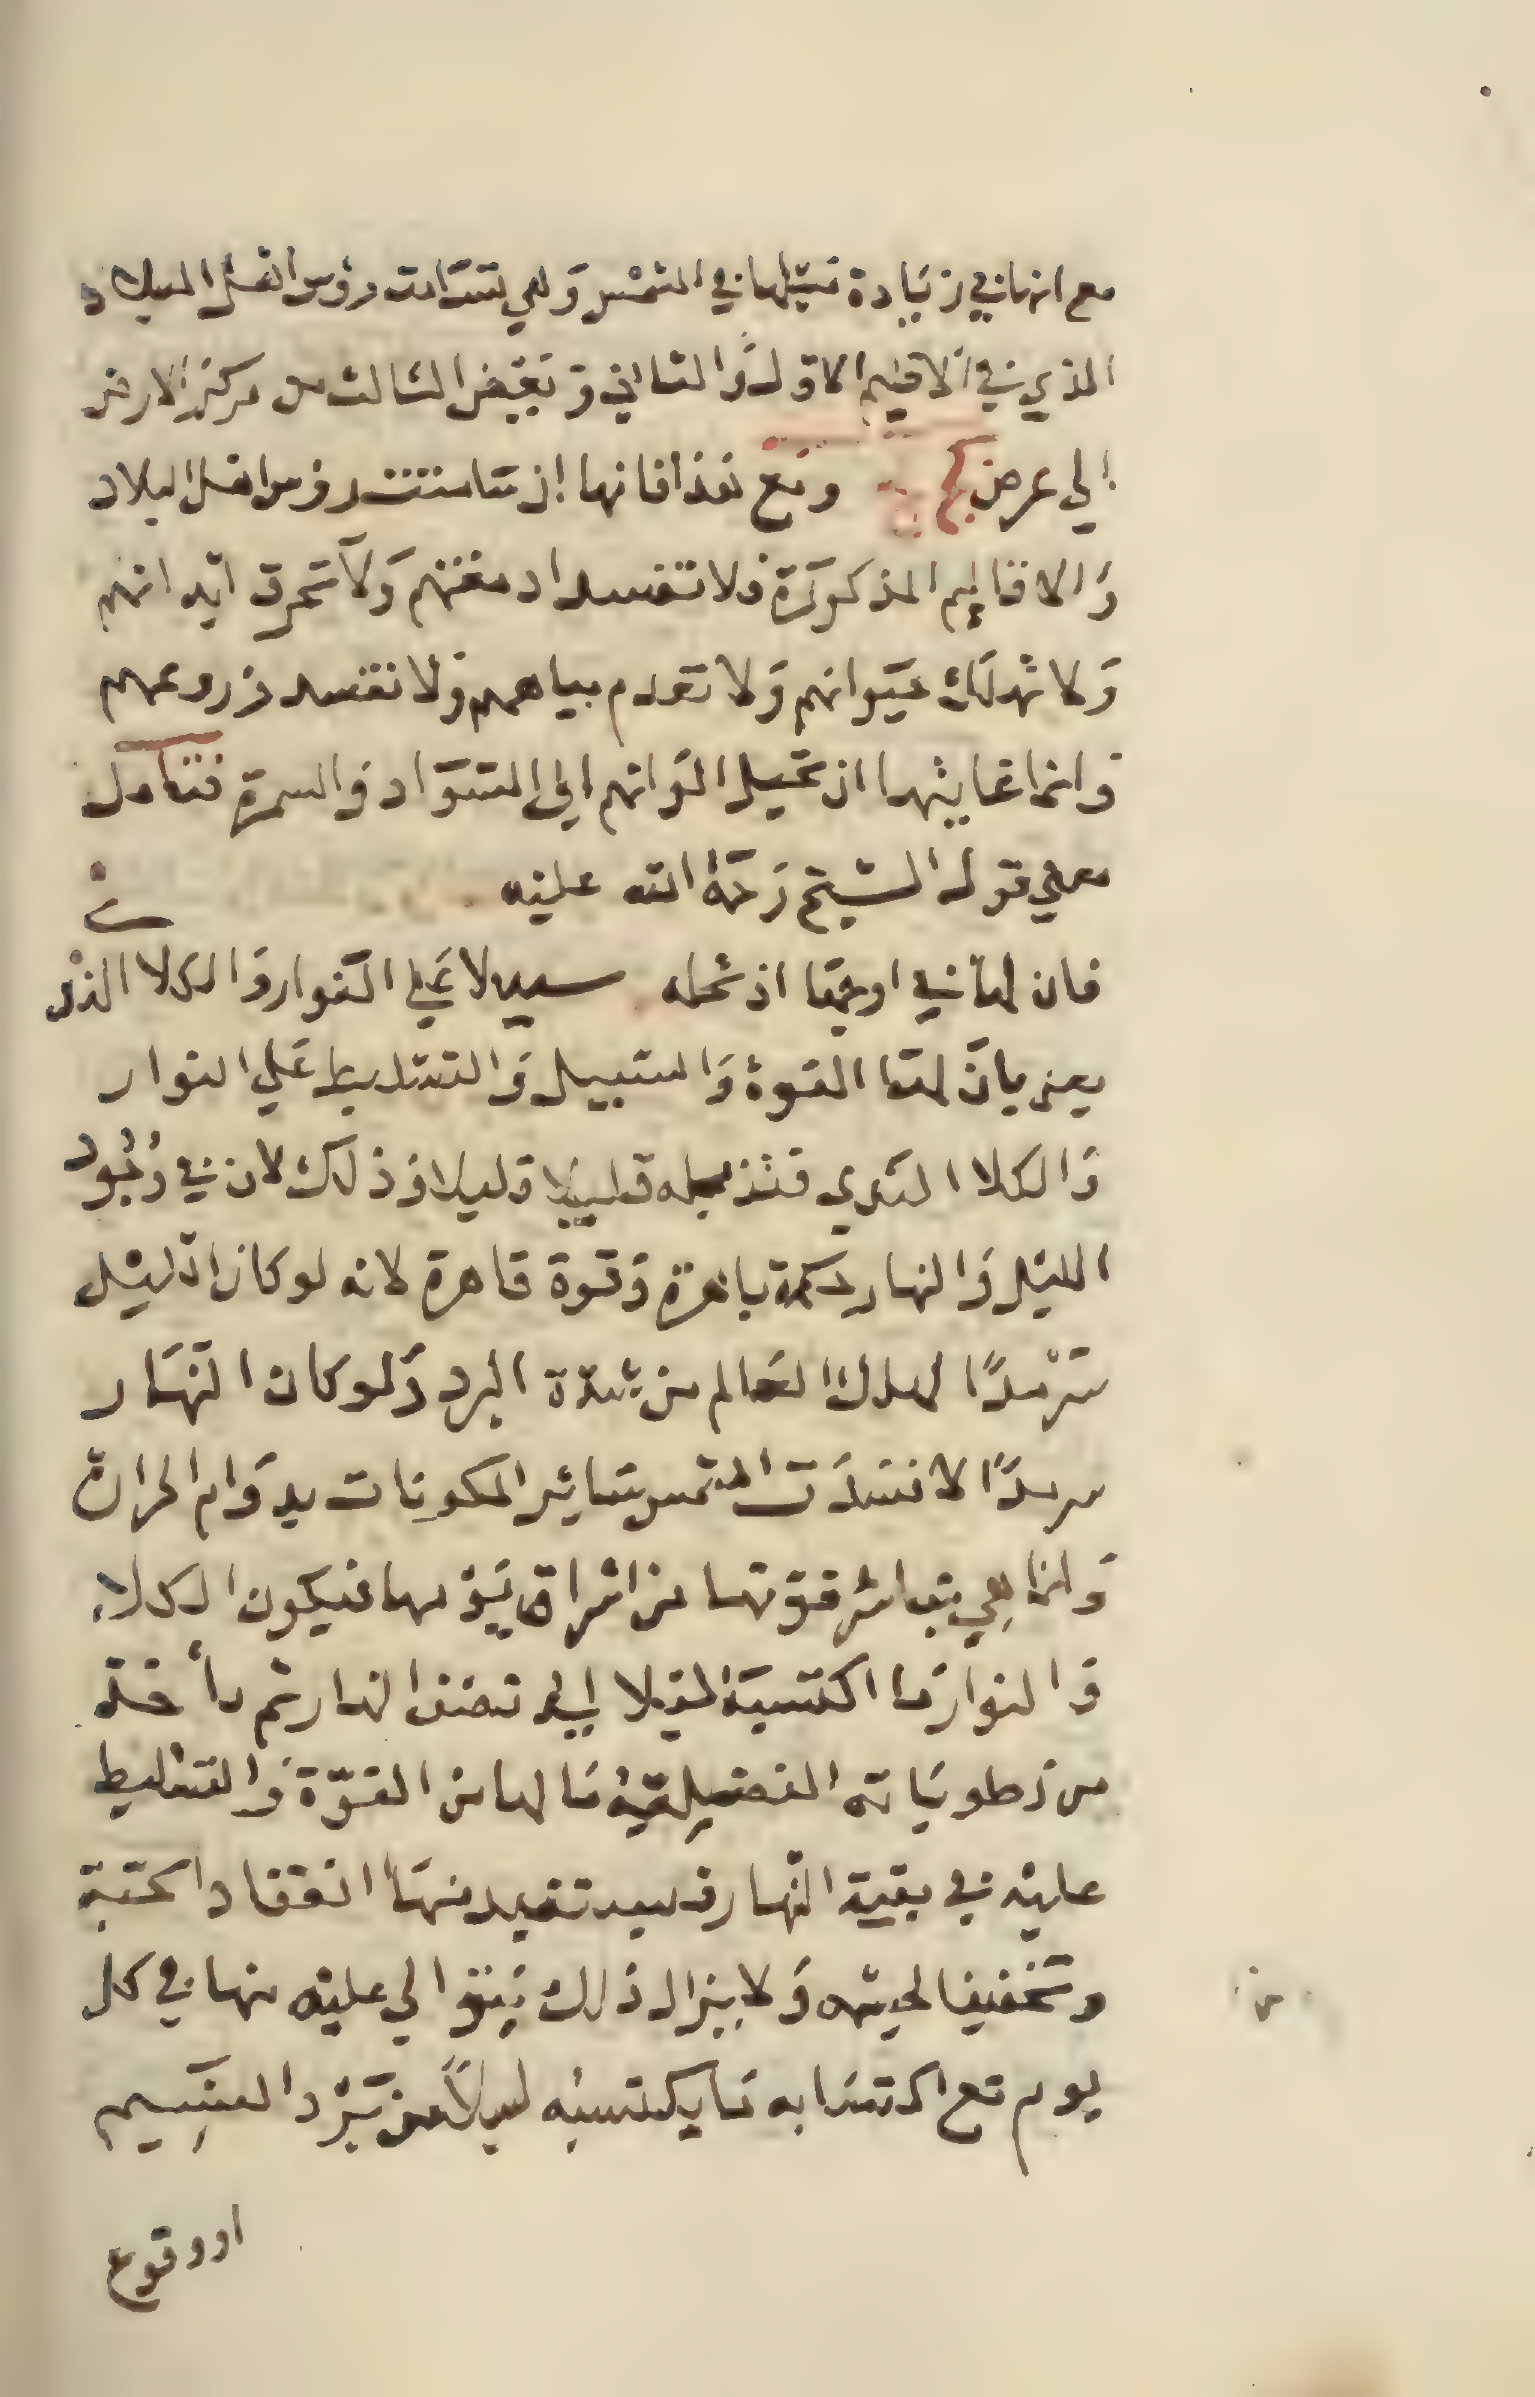 مع انها في زيادة ميلها في الشمس وهي تسامت رؤس اهل البلاد
الذي في الاقليم الاول والثاني وبعض الثالث من مركز الارض
الي عرض ومع هذا فانها اذ سامتت رؤس اهل البلاد
والاقاليم المذكورة فلا تفسد ادمغتهم ولا تحرق ابدانهم
ولا تهلك حيوانهم ولا تعدم مياههم ولا تفسد زروعهم
وانما غايتها ان تحيل الوانهم الي السواد والسمرة فتامل
معني قول الشيخ رحمة الله عليه
فان لها في اوجها اذ تحله سبيلا علي النوار والكلا الند
يعني بان لها القوة والسبيل والتسليط علي النوار
والكلا الندي فتذبله قليلا قليلا وذلك لان في وجود
الليل والنهار حكمة باهرة وقوة قاهرة لانه لو كان الليل
سرمدا لهلك العالم من شدة البرد ولو كان النهار
سرمدا لافسدت الشمس سائر المكونات بدوام الحرارة
وانما هي تباشر قوتها من اشراق يومها فيكون الكلا
والنوار ما اكتسبه ليلا الي نصف النهار ثم تأخذ
من رطوباته الفضيلية ما لها من القوة والتسليط
عليه في بقية النهار فيستفيد منها انعقاد الحبة
وتخفيفا لجسمه ولا يزال ذلك يتوالي عليه منها في كل
يوم مع اكتسابه ما يكتسبه ليلا من برد النسيم
او وقوع